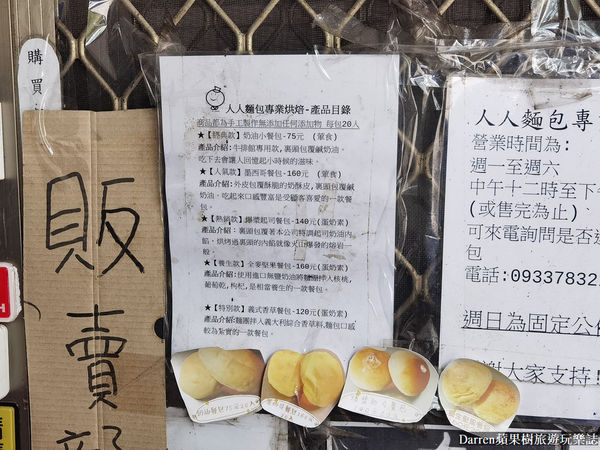 購買
販
賣
人人麵包專業烘焙-產品目錄
商品都為手工製作無添加任何添加物 每包20入
★【經典款】奶油小餐包-75元 (葷食)
產品介紹:牛排館專用款,裏頭包覆鹹奶油,
吃下去會讓人回憶起小時候的滋味。
★【人氣款】墨西哥餐包-160元 (葷食)
產品介紹:外皮包覆酥脆的奶酥皮,裏頭包覆鹹
奶油,吃起來口感豐富是受顧客喜愛的一款餐
包。
★【熱銷款】爆漿起司餐包-140元(蛋奶素)
產品介紹:裏頭包覆著本公司特調起司奶油內
餡,烘烤過裏頭的內餡就像火山爆發的熔岩一
般。
★【養生款】全麥堅果餐包-160元(蛋奶素)
產品介紹:使用進口無鹽奶油將麵團拌入核桃,
葡萄乾,枸杞,是相當養生的一款餐包。
★【特別款】義式香草餐包-120元(蛋奶素)
產品介紹:麵團拌入義大利綜合香草料,麵包口感
較為紮實的一款餐包。
人人麵包專
營業時間為:
週一至週六
中午十二時至下
(或售完為止)
可來電詢問是否
包
電話:09337832
週日為固定公
謝大家支持!
Darren蘋果樹旅遊玩樂誌